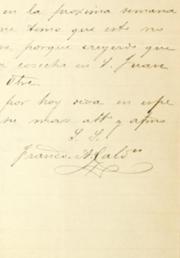 en la proxima semana
temo que este no
porque creyendo que
cosecha en S. Juan
Otre
por hoy viva en espe
mas att y afmo
S. S.
Franco